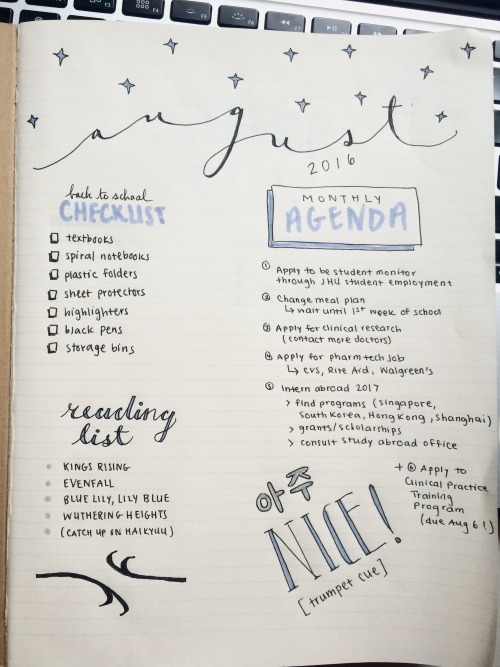 august
2016
back to school
CHECKLIST
textbooks
spiral notebooks
plastic folders
sheet protectors
highlighters
black pens
storage bins
reading
list
KINGS RISING
EVENFALL
BLUE LILY, LILY BLUE
WUTHERING HEIGHTS
(CATCH UP ON HAIKYUU)
MONTHLY
AGENDA
① Apply to be student monitor
through JHU student employment
② Change meal plan
↳ wait until 1st week of school
③ Apply for clinical research
(contact more doctors)
④ Apply for pharm tech job
↳ CVS, Rite Aid, Walgreen's
⑤ Intern abroad 2017
> find programs (Singapore,
South Korea, Hong Kong, Shanghai)
> grants/scholarships
> consult study abroad office
+ ⑥ Apply to
Clinical Practice
Training
Program
(due Aug 6!)
아주
NICE!
[trumpet cue]